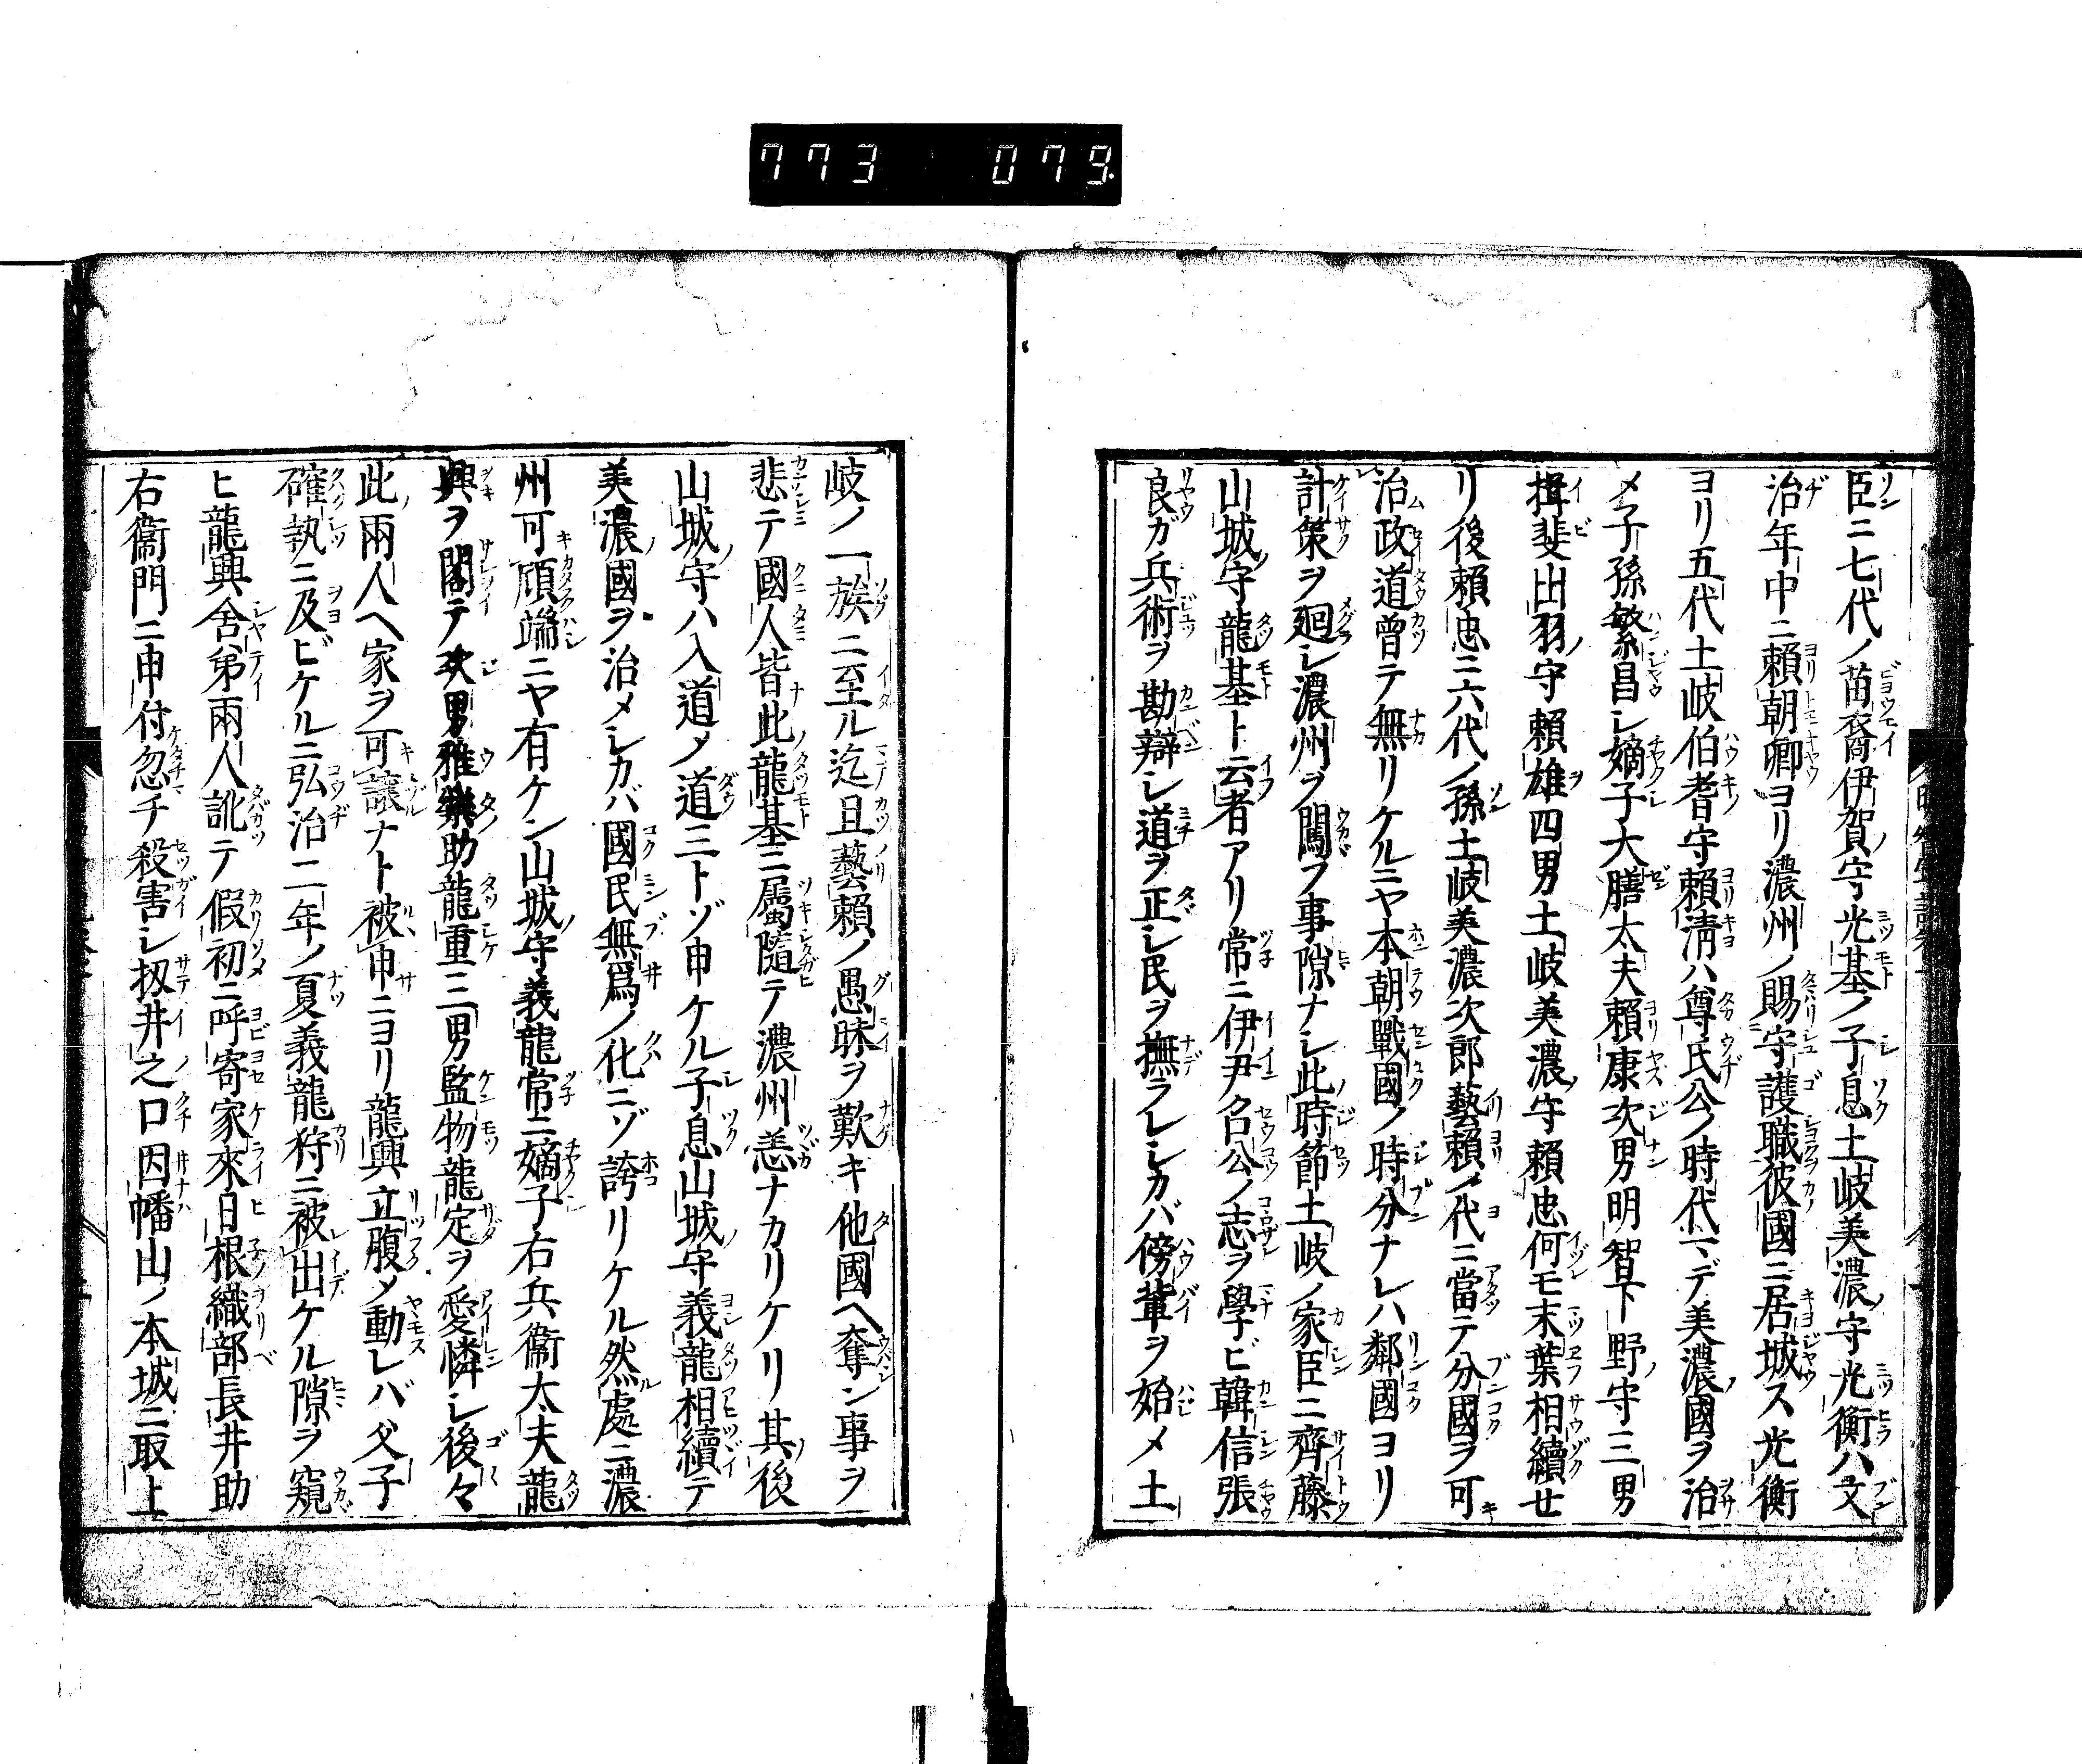 773 079
臣ニ七代ノ苗裔伊賀守光基ノ子息土岐美濃守光衡ハ文
治年中ニ賴朝卿ヨリ濃州ノ賜守護職彼國ニ居城ス光衡
ヨリ五代土岐伯耆守賴淸ハ尊氏公ノ時代マデ美濃國ヲ治
メ子孫繁昌シ嫡子大膳太夫賴康次男明智下野守三男
揖斐出羽守賴雄四男土岐美濃守賴忠何モ末葉相續セ
リ後賴忠ニ六代ノ孫土岐美濃次郎藝賴ノ代ニ當テ分國ヲ可
治政道曾テ無リケルニヤ本朝戰國ノ時分ナレハ鄰國ヨリ
計策ヲ廻シ濃州ヲ闚フ事隙ナシ此時節土岐ノ家臣ニ齊藤
山城守龍基ト云者アリ常ニ伊尹召公ノ志ヲ學ビ韓信張
良ガ兵術ヲ勘辯シ道ヲ正シ民ヲ撫ラレシカバ傍輩ヲ始メ土
岐ノ一族ニ至ル迄且藝賴ノ愚昧ヲ歎キ他國ヘ奪ン事ヲ
悲テ國人皆此龍基ニ屬隨テ濃州恙ナカリケリ其後
山城守ハ入道ノ道三トゾ申ケル子息山城守義龍相續テ
美濃國ヲ治メシカバ國民無爲ノ化ニゾ誇リケル然處ニ濃
州可頎端ニヤ有ケン山城守義龍常ニ嫡子右兵衞太夫龍
興ヲ閣テ次男雅樂助龍重三男監物龍定ヲ愛憐シ後々
此兩人ヘ家ヲ可讓ナト被申ニヨリ龍興立腹メ動レバ父子
確執ニ及ビケルニ弘治二年ノ夏義龍狩ニ被出ケル隙ヲ窺
ヒ龍興舍弟兩人訛テ假初ニ呼寄家來日根織部長井助
右衞門ニ申付忽チ殺害シ扨井之口因幡山ノ本城ニ取上